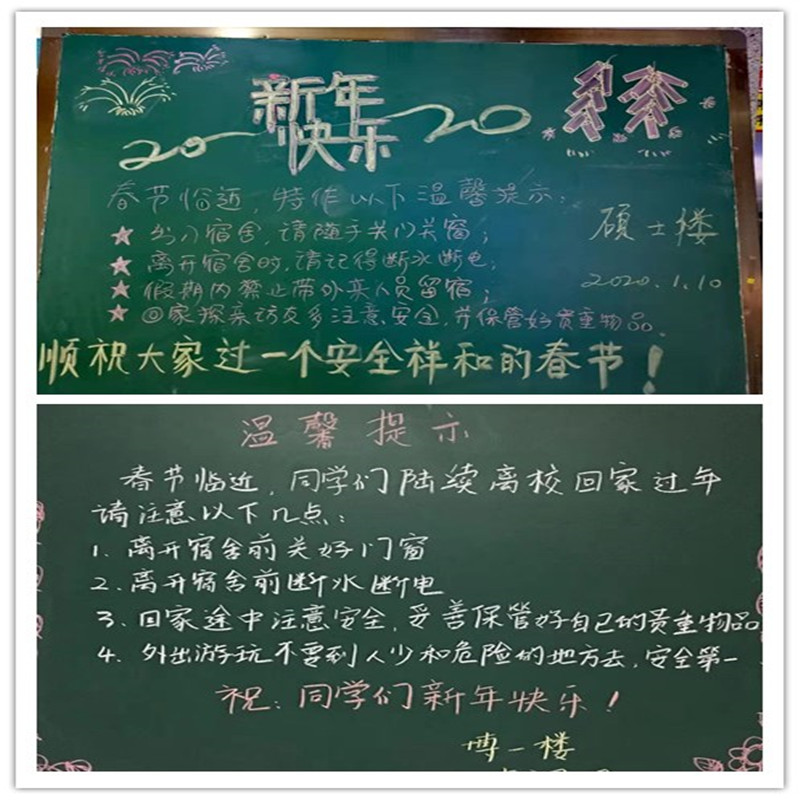 新年
20 快乐 20
春节临近，特作以下温馨提示：
★ 出入宿舍，请随手关门关窗；
★ 离开宿舍时，请记得断水断电；
★ 假期内禁止带外来人员留宿；
★ 回家探亲访友多注意安全，并保管好贵重物品。
硕士楼
2020.1.10
顺祝大家过一个安全祥和的春节！
温馨提示
春节临近，同学们陆续离校回家过年
请注意以下几点：
1. 离开宿舍前关好门窗
2. 离开宿舍前断水断电
3. 回家途中注意安全，妥善保管好自己的贵重物品
4. 外出游玩不要到人少和危险的地方去，安全第一
祝：同学们新年快乐！
博一楼